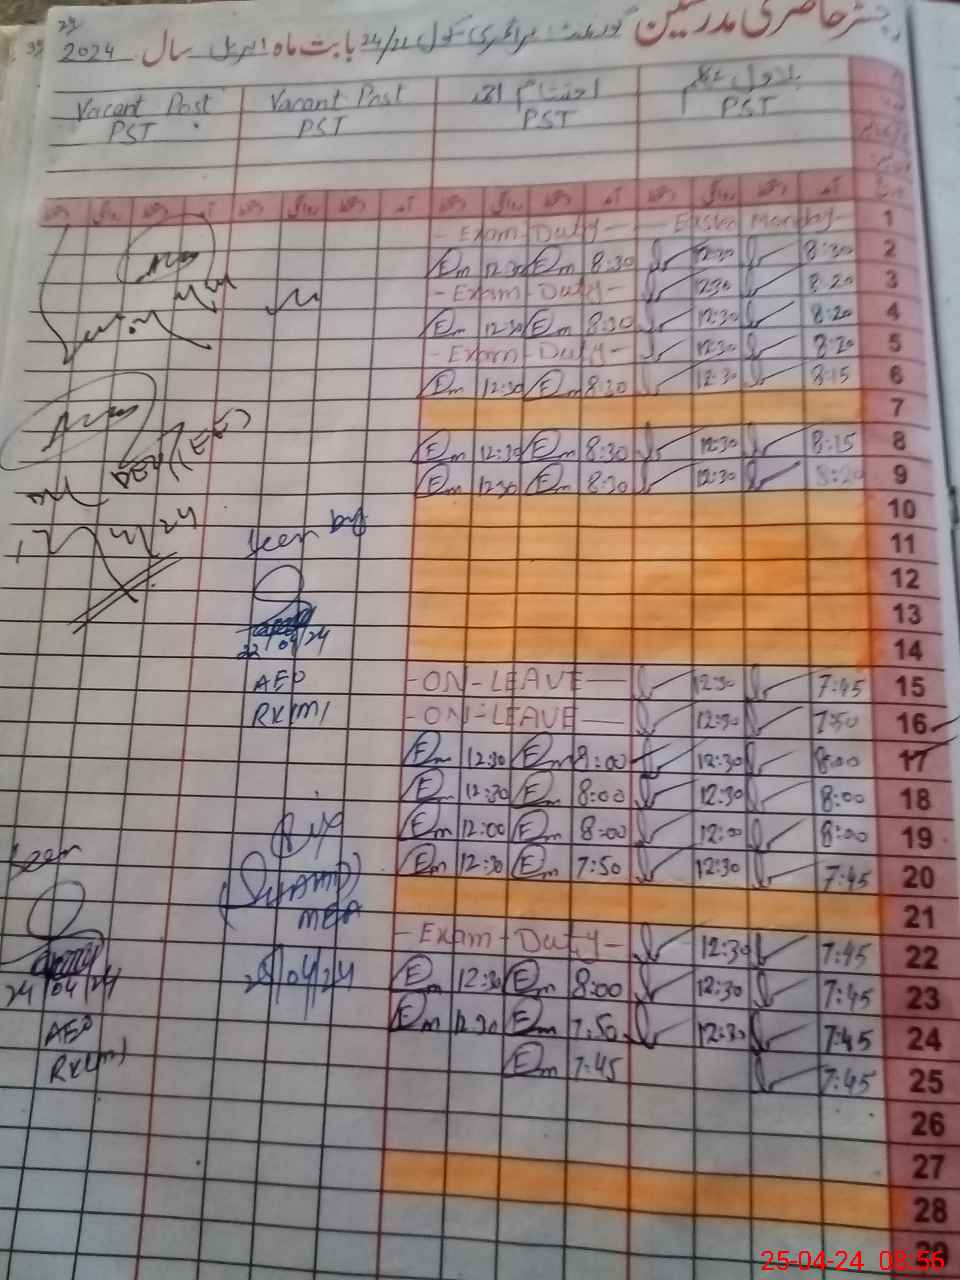 رجسٹر حاضری مدرسین گورنمنٹ پرائمری سکول 24/21 بابت ماہ اپریل سال 2024
29
Vacant Post Vacant Post احتشام احمد بلاول
PST PST PST PST
دستخط روانگی دستخط آمد دستخط روانگی دستخط آمد دستخط روانگی دستخط آمد دستخط روانگی دستخط آمد
- Exam Duty - - Easter Monday - 1
Em 12:30 Em 8:30 12:30 8:30 2
- Exam - Duty - 12:30 8:20 3
Em 12:30 Em 8:30 12:30 8:20 4
- Exam - Duty - 12:30 8:20 5
Em 12:30 Em 8:20 12:30 8:15 6
7
Em 12:30 Em 8:30 12:30 8:15 8
Em 12:30 Em 8:30 12:30 8:20 9
10
Seen by 11
12
13
22/04/24 14
AEO - ON - LEAVE - 12:30 7:45 15
RK(M) - ON - LEAVE - 12:30 7:50 16
Em 12:30 Em 8:00 12:30 8:00 17
Em 12:30 Em 8:00 12:30 8:00 18
Em 12:00 Em 8:00 12:00 8:00 19
Seen Em 12:30 Em 7:50 12:30 7:45 20
MEA 21
- Exam - Duty - 12:30 7:45 22
24/04/24 /04/24 Em 12:30 Em 8:00 12:30 7:45 23
AEO Em 12:30 Em 7:50 12:30 7:45 24
RK(M) Em 7:45 7:45 25
26
27
28
29
25-04-24 08:56